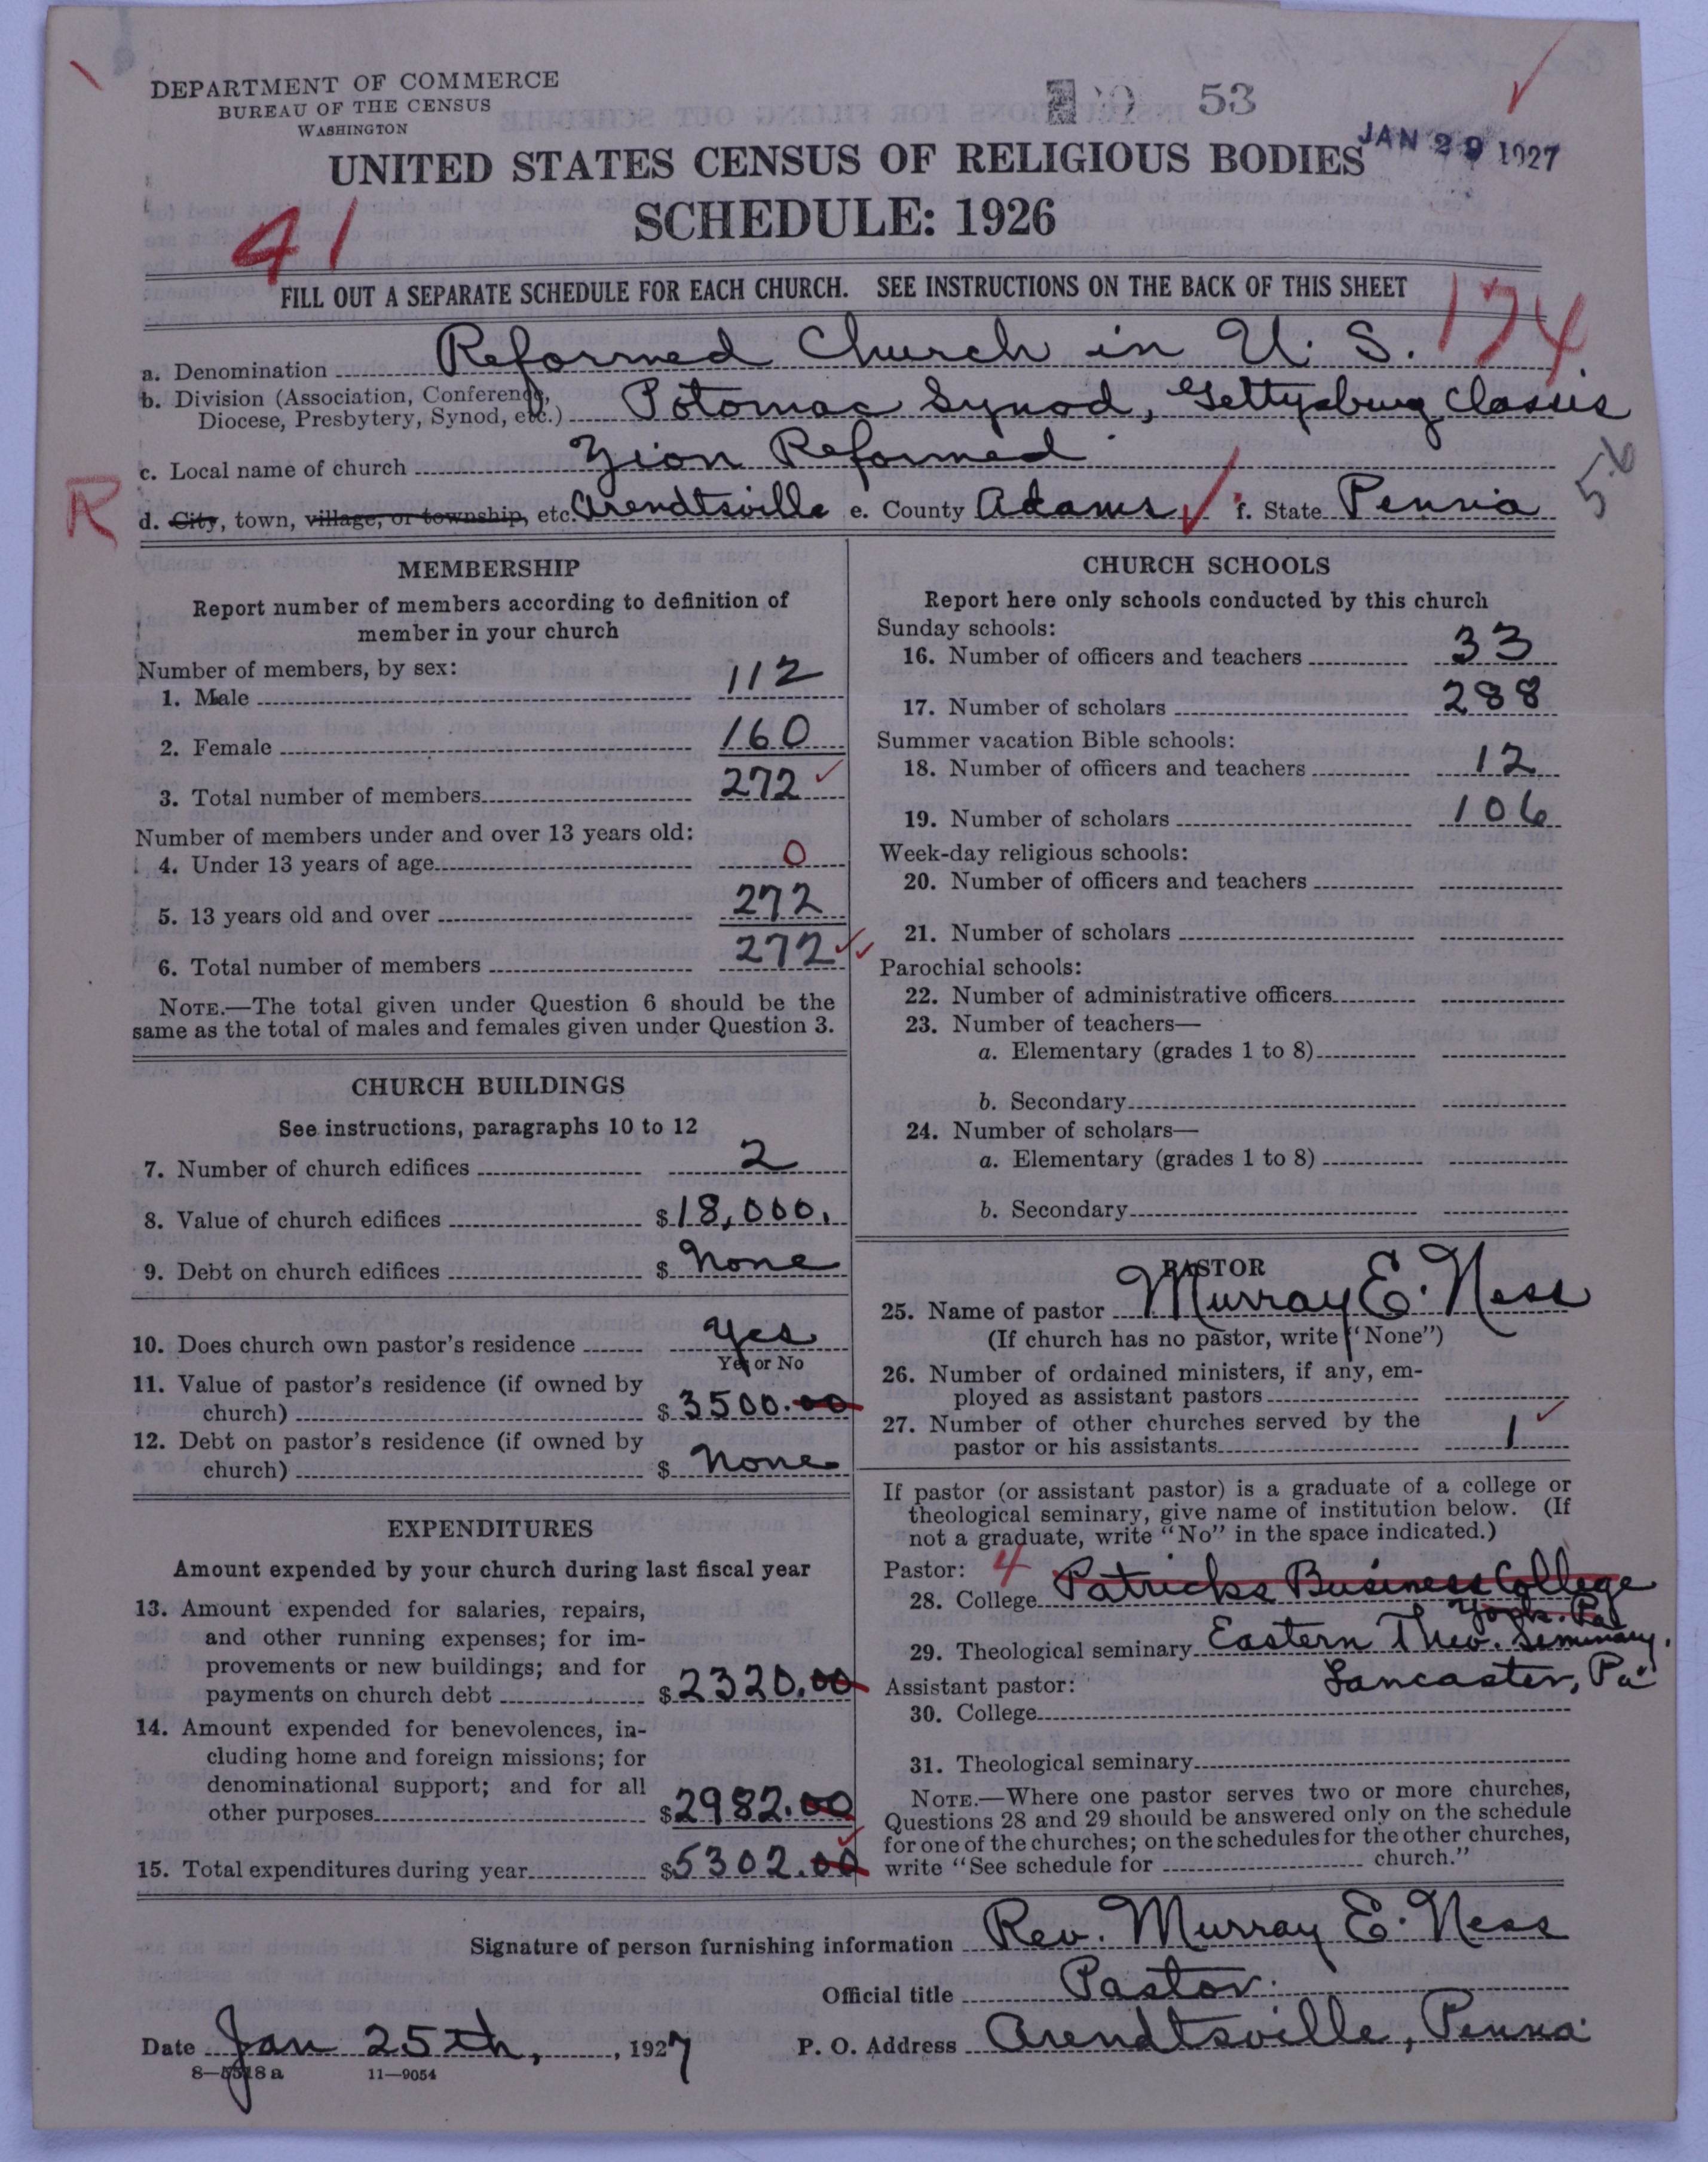 DEPARTMENT OF COMMERCE
BUREAU OF THE CENSUS
WASHINGTON
53
JAN 29 1927
UNITED STATES CENSUS OF RELIGIOUS BODIES
SCHEDULE: 1926
41
FILL OUT A SEPARATE SCHEDULE FOR EACH CHURCH. SEE INSTRUCTIONS ON THE BACK OF THIS SHEET
174
a. Denomination Reformed Church in U. S.
b. Division (Association, Conference, Diocese, Presbytery, Synod, etc.) Potomac Synod, Gettysburg Classis
c. Local name of church Zion Reformed
R
d. City, town, village, or township, etc. Arendtsville e. County Adams f. State Penna
MEMBERSHIP
Report number of members according to definition of
member in your church
Number of members, by sex:
1. Male 112
2. Female 160
3. Total number of members 272
Number of members under and over 13 years old:
4. Under 13 years of age 0
5. 13 years old and over 272
6. Total number of members 272
NOTE.—The total given under Question 6 should be the
same as the total of males and females given under Question 3.
CHURCH BUILDINGS
See instructions, paragraphs 10 to 12
7. Number of church edifices 2
8. Value of church edifices $18,000.
9. Debt on church edifices $ None
10. Does church own pastor's residence Yes
Yes or No
11. Value of pastor's residence (if owned by
church) $3500.00
12. Debt on pastor's residence (if owned by
church) $ None
EXPENDITURES
Amount expended by your church during last fiscal year
13. Amount expended for salaries, repairs,
and other running expenses; for im-
provements or new buildings; and for
payments on church debt $2320.00
14. Amount expended for benevolences, in-
cluding home and foreign missions; for
denominational support; and for all
other purposes $2982.00
15. Total expenditures during year $5302.00
CHURCH SCHOOLS
Report here only schools conducted by this church
Sunday schools:
16. Number of officers and teachers 33
17. Number of scholars 288
Summer vacation Bible schools:
18. Number of officers and teachers 12
19. Number of scholars 106
Week-day religious schools:
20. Number of officers and teachers
21. Number of scholars
Parochial schools:
22. Number of administrative officers
23. Number of teachers—
a. Elementary (grades 1 to 8)
b. Secondary
24. Number of scholars—
a. Elementary (grades 1 to 8)
b. Secondary
PASTOR
25. Name of pastor Murray E. Ness
(If church has no pastor, write "None")
26. Number of ordained ministers, if any, em-
ployed as assistant pastors
27. Number of other churches served by the
pastor or his assistants 1
If pastor (or assistant pastor) is a graduate of a college or
theological seminary, give name of institution below. (If
not a graduate, write "No" in the space indicated.)
Pastor: 4
28. College Patricks Business College
York. Pa
29. Theological seminary Eastern Theo. Seminary.
Lancaster, Pa
Assistant pastor:
30. College
31. Theological seminary
NOTE.—Where one pastor serves two or more churches,
Questions 28 and 29 should be answered only on the schedule
for one of the churches; on the schedules for the other churches,
write "See schedule for church."
Signature of person furnishing information Rev. Murray E. Ness
Official title Pastor.
Date Jan 25th, , 1927 P. O. Address Arendtsville, Penna
8—5518 a 11—9054